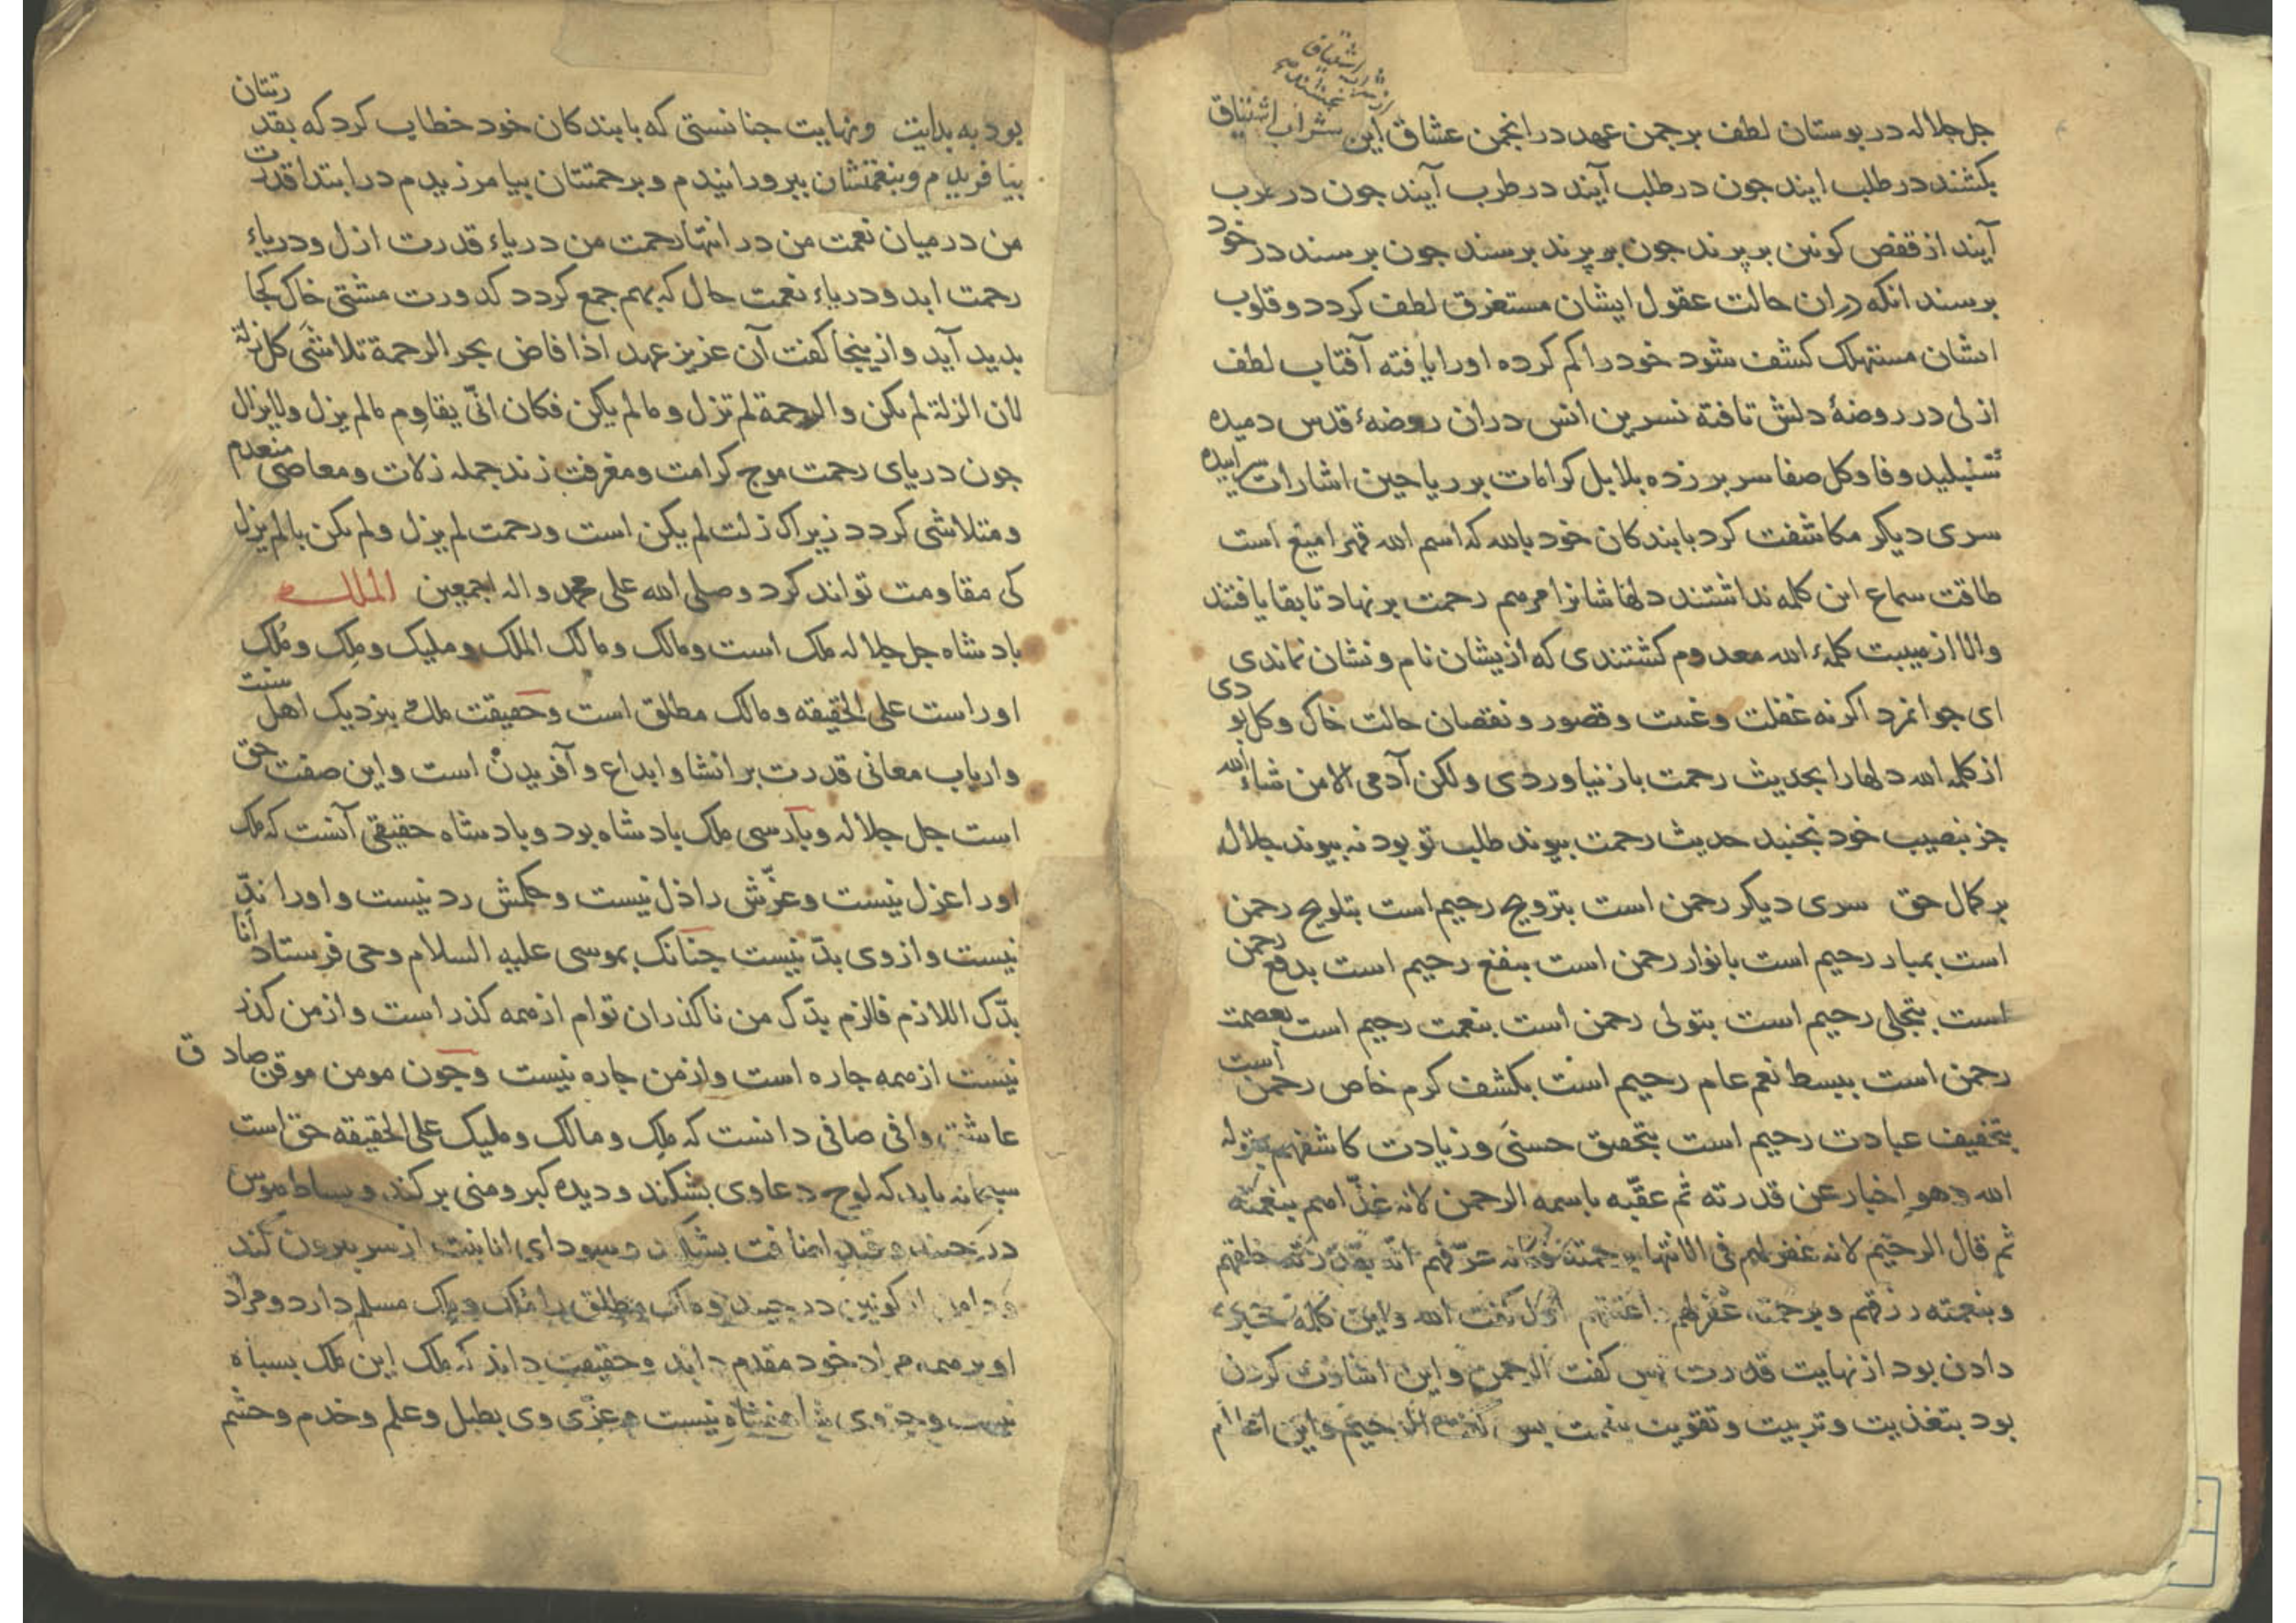 جل جلاله در بوستان لطف بر چمن عهد در انجمن عشاق این شراب اشتیاق
بکشند در طلب ایند جون در طلب آیند در طرب آیند جون در طرب
آیند از قفص کونین بر پرند جون بر پرند برسند جون برسند در خود
برسند انکه دران حالت عقول ایشان مستغرق لطف کردد و قلوب
ایشان مستهلک کشف شود خود را کم کرده او را یافته آفتاب لطف
ازلی در روضهٔ دلش تافته نسرین انس دران روضهٔ قدس دمیده
شنبلید وفا و کل صفا سر بر زده بلابل کرامات بر ریاحین اشارات سراییده
سری دیکر مکاشفت کرد با بندکان خود بالله که اسم الله قهر امیغ است
طاقت سماع این کلمه نداشتند دلهاشانرا مرهم رحمت بر نهاد تا بقا یافتند
والا از هیبت کلمهٔ الله معدوم کشتندی که ازیشان نام و نشان نماندی
ای جوانمرد اکر نه غفلت و غیبت و قصور و نقصان حالت خاک و کل بودی
از کلمه الله دلها را بحدیث رحمت باز نیاوردی ولکن آدمی الا من شاء الله
جز بنصیب خود نجنبد حدیث رحمت پیوند طلب تو بود نه پیوند جلال
بر کمال حق سری دیکر رحمن است بترویح رحیم است بتلویح رحمن
است بمبار رحیم است بانوار رحمن است بنفع رحیم است بدفع رحمن
است بتجلی رحیم است بتولی رحمن است بنعمت رحیم است بعصمت
رحمن است ببسط نعم عام رحیم است بکشف کرم خاص رحمن است
بتخفیف عبادت رحیم است بتحقیق حسنی و زیادت کاشفهم بقوله
الله وهو اخبار عن قدرته ثم عقّبه باسمه الرحمن لانه غذّاهم بنعمته
ثم قال الرحیم لانه غفر لهم فی الانتها برحمته فکانه عرّفهم انه بقدرته خلقهم
وبنعمته رزقهم وبرحمته غفر لهم اول کفت الله و این کلمه خبری
دادن بود از نهایت قدرت پس کفت الرحمن و این اشارت کردن
بود بتغذیت و تربیت و تقویت بنعمت پس کفت الرحیم و این اعلام
بود به بدایت و نهایت جنانستی که با بندکان خود خطاب کرد که بقدرتتان
بیافریدم و بنعمتتان بپرورانیدم و برحمتتان بیامرزیدم در ابتدا قدرت
من در میان نعمت من در انتها رحمت من دریاء قدرت ازل و دریاء
رحمت ابد و دریاء نعمت حال که بهم جمع کردد کدورت مشتی خاک کجا
بدید آید و ازینجا کفت آن عزیز عهد اذا فاض بحر الرحمة تلاشی کل زلة
لان الزلة لم یکن والرحمة لم تزل وما لم یکن فکان انّی یقاوم ما لم یزل ولا یزال
جون دریای رحمت موج کرامت و مغفرت زند جمله زلات و معاصی منعدم
و متلاشی کردد زیراک زلت لم یکن است و رحمت لم یزل و لم یکن با لم یزل
کی مقاومت تواند کرد وصلی الله علی محمد واله اجمعین الملک
بادشاه جل جلاله ملک است و مالک و مالک الملک و ملیک و ملک و ملک
اوراست علی الحقیقه و مالک مطلق است و حقیقت ملک بنزدیک اهل سنت
و ارباب معانی قدرت بر انشا و ابداع و آفریدن است و این صفت حق
است جل جلاله و بارسی ملک بادشاه بود و بادشاه حقیقی آنست که ملک
اورا عزل نیست و عزّش را ذل نیست و حکمش رد نیست و اورا ندّ
نیست و از وی بدّ نیست جنانک بموسی علیه السلام وحی فرستاد انا
بدّک اللازم فالزم بدّک من ناکذران توام از همه کذر است و از من کذر
نیست از همه جاره است و از من جاره نیست و جون مومن موقن صادق
عاشق وافی صافی دانست که ملک و مالک و ملیک علی الحقیقه حق است
سبحانه باید که لوح دعاوی بشکند و دیده کبر و منی بر کند و بساط هوس
در و قید اضافت بشکند و سودای انانیت از سر بیرون کند
و دامن از کونین در جیند و ملک مطلق را ملک و ملک مسلم دارد و مراد
او بر همه مراد خود مقدم داند و حقیقت داند که ملک این ملک بسباه
نیست و جز وی شاهنشاه نیست و عزّ وی بطبل و علم و خدم و حشم